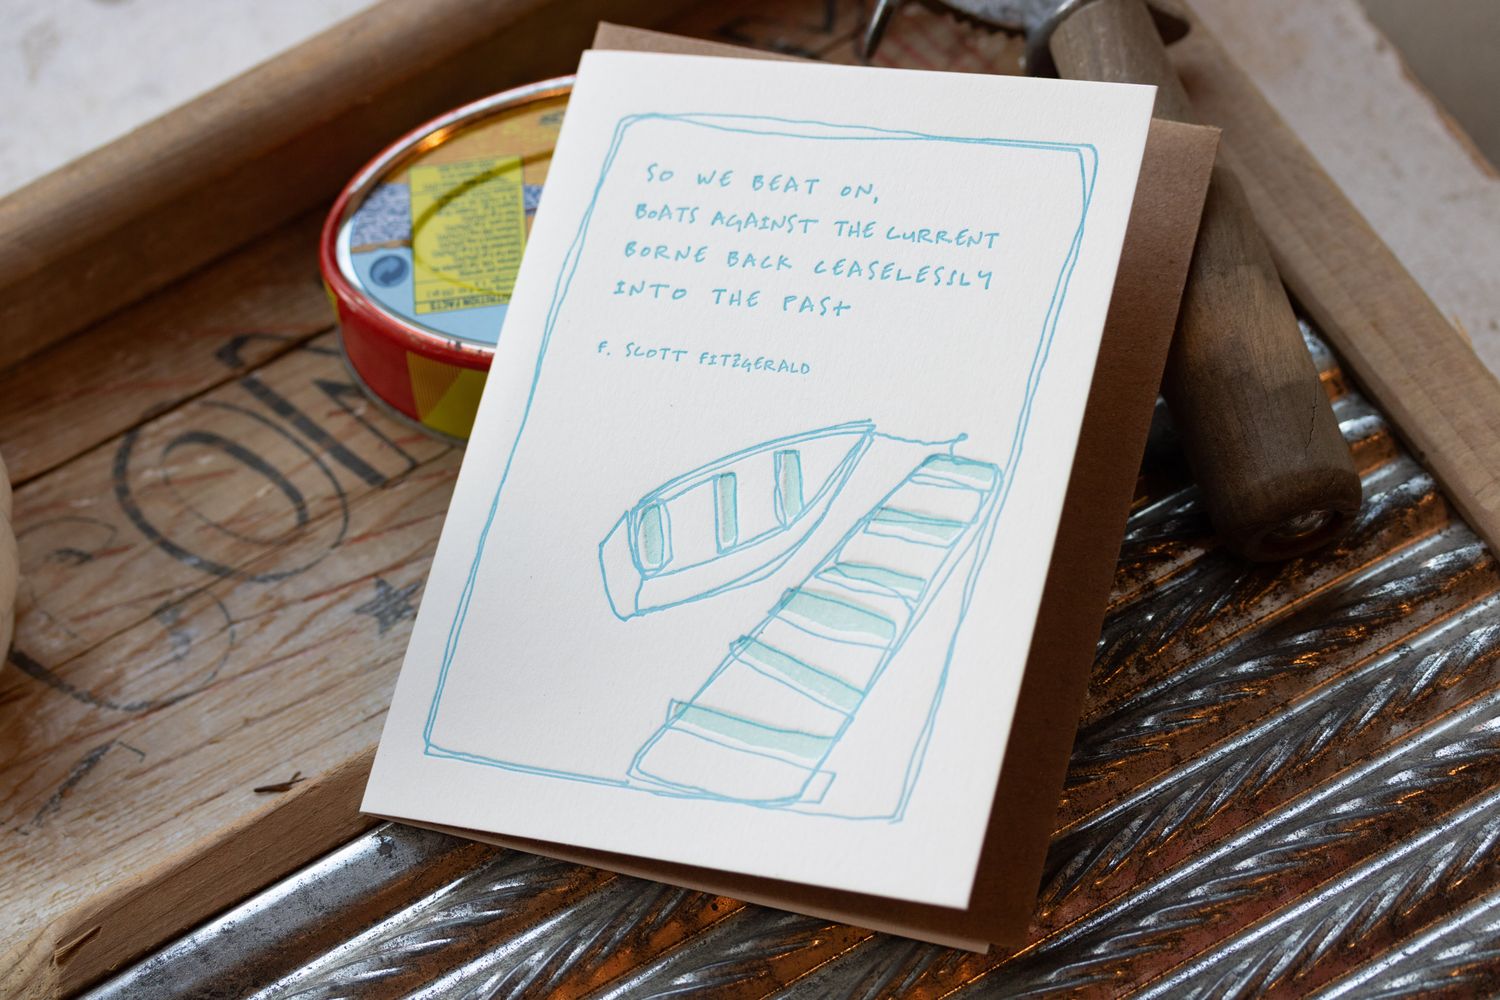 SO WE BEAT ON,
BOATS AGAINST THE CURRENT
BORNE BACK CEASELESSLY
INTO THE PAST
F. SCOTT FITZGERALD
NUTRITION FACTS